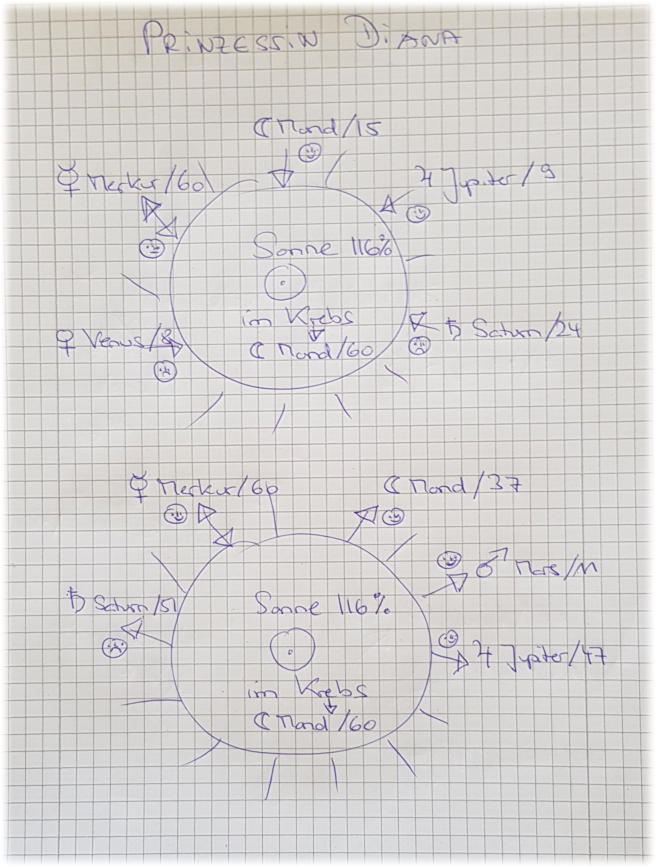 PRINZESSIN DIANA
☾ Mond/15
☿ Merkur/60
♃ Jupiter/9
Sonne 116%
im Krebs
♀ Venus/8
♄ Saturn/24
☾ Mond/60
☿ Merkur/60
☾ Mond/37
♂ Mars/11
♄ Saturn/51
Sonne 116%
♃ Jupiter/47
im Krebs
☾ Mond/60